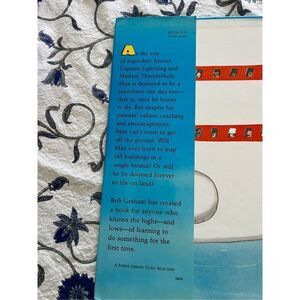 As the son
of legendary heroes
Captain Lightning and
Madam Thunderbolt,
Max is destined to be a
superhero one day too—
that is, once he learns
to fly. But despite his
parents' valiant coaching
and encouragement,
Max can't seem to get
off the ground. Will
Max ever learn to leap
tall buildings in a
single bound? Or will
he be doomed forever
to life on land?
Bob Graham has created
a book for anyone who
knows the highs—and
lows—of learning to
do something for the
first time.
A Junior Library Guild Selection